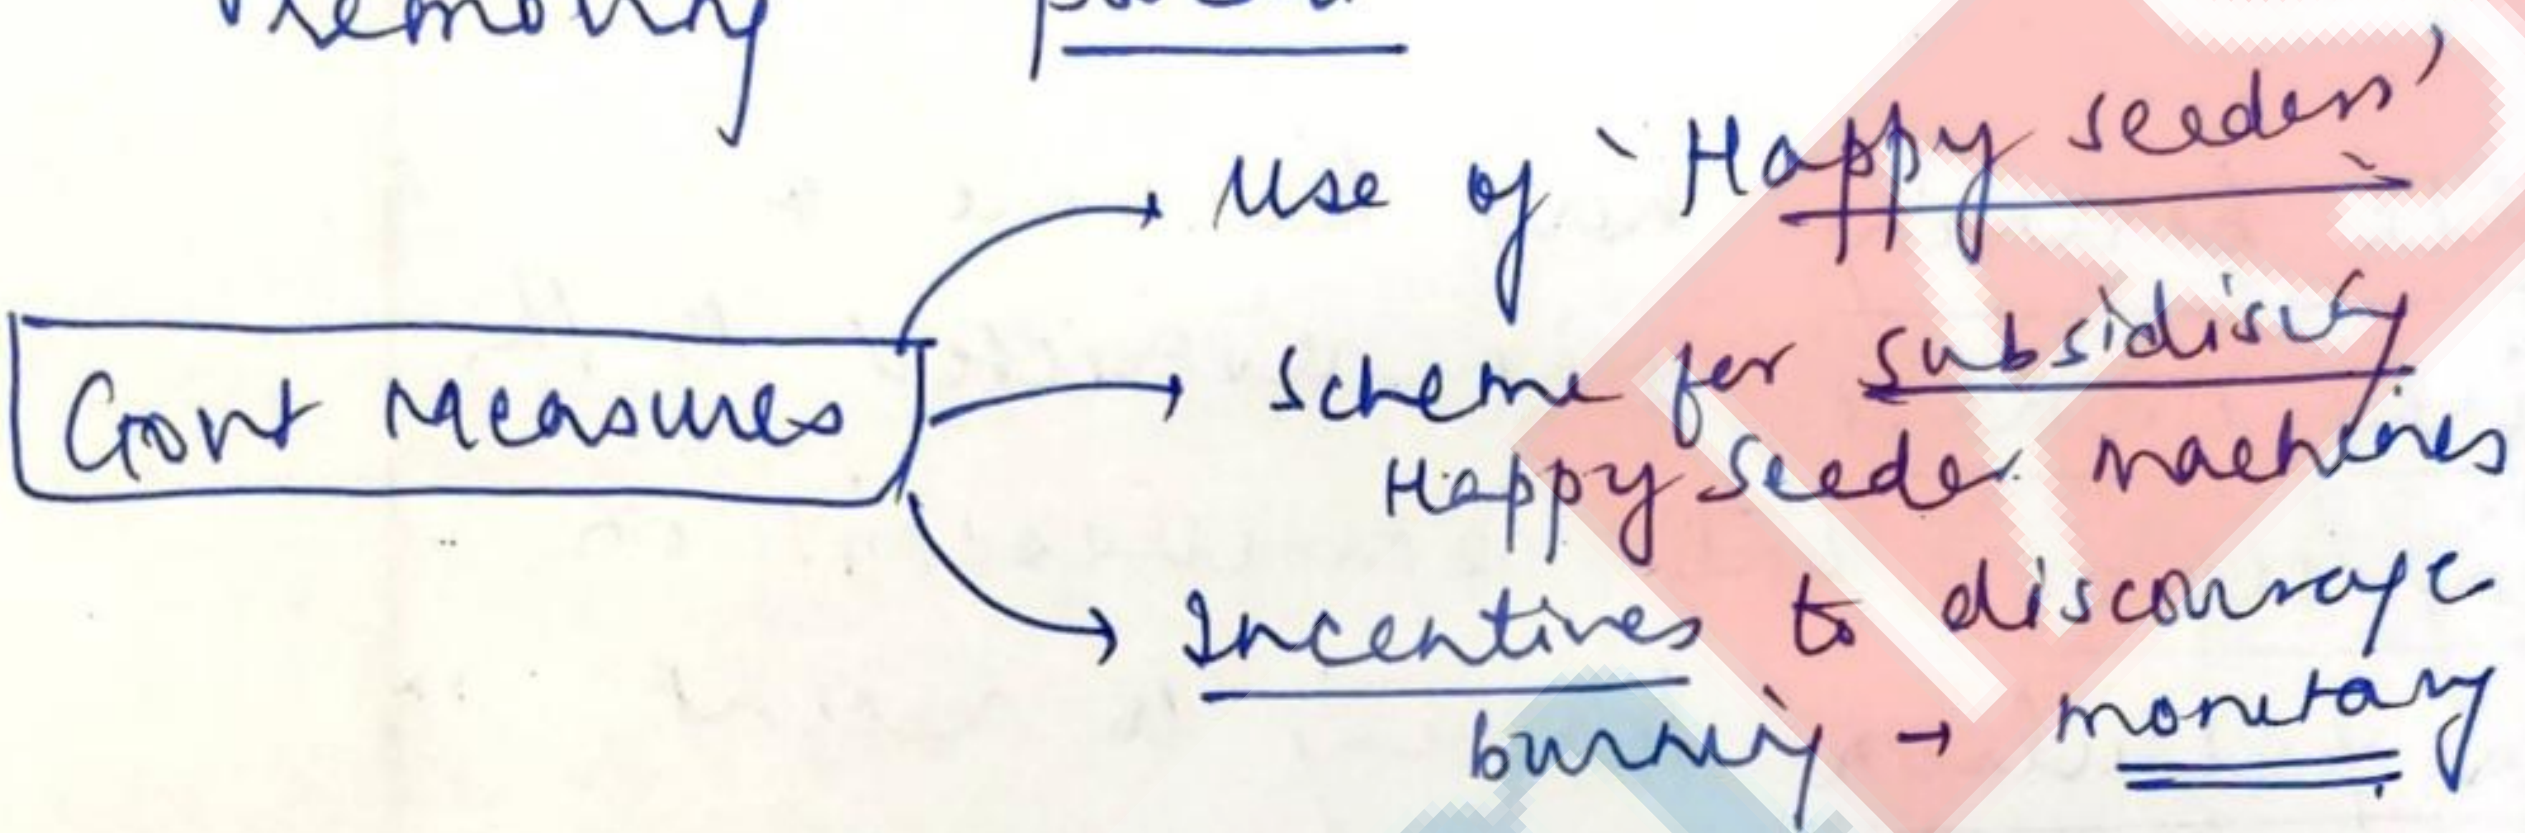 removing
Govt Measures
Use of 'Happy seeders'
Scheme for subsidising
Happy Seeder machines
Incentives to discourage
burning → monetary